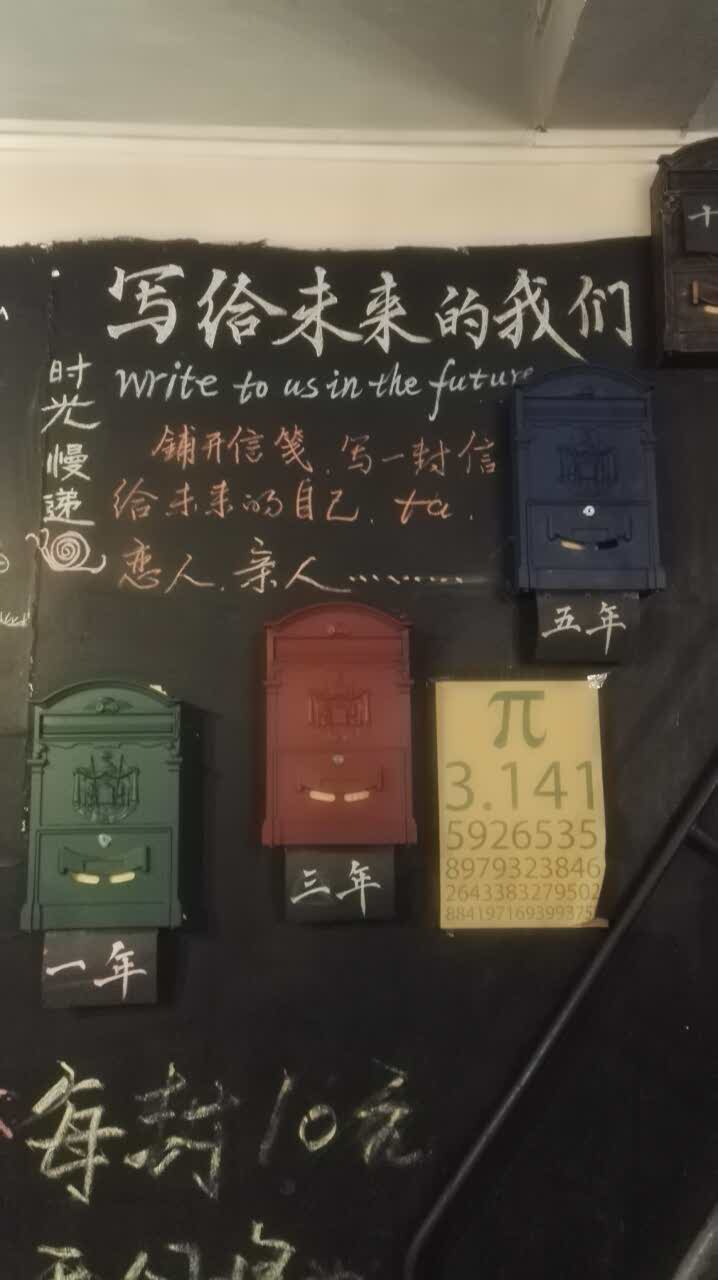 写给未来的我们
Write to us in the future
时光慢递
鋪开信笺,写一封信
给未来的自己、ta、
恋人、亲人………
十
五年
三年
一年
π
3.141
5926535
8979323846
2643383279502
884197169399375
每封10元